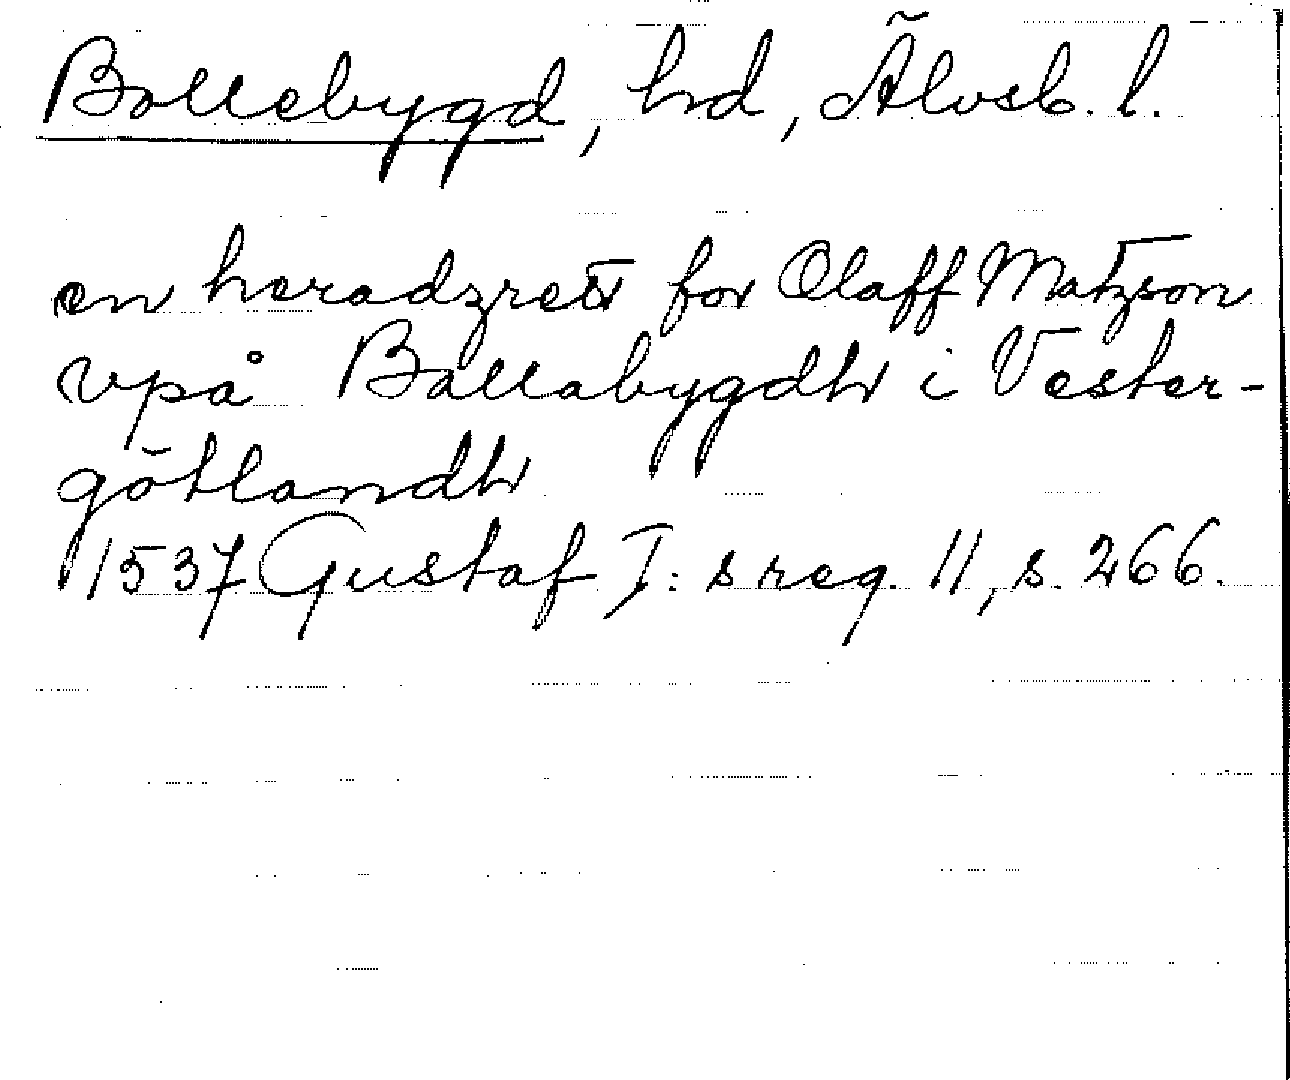 Bollebygd, hd, Älvsb. l.
en heradzrett for Olaff Matzson
vpå Ballabygdh i Vester-
götlandh
1537 Gustaf I: s reg. 11, s. 266.